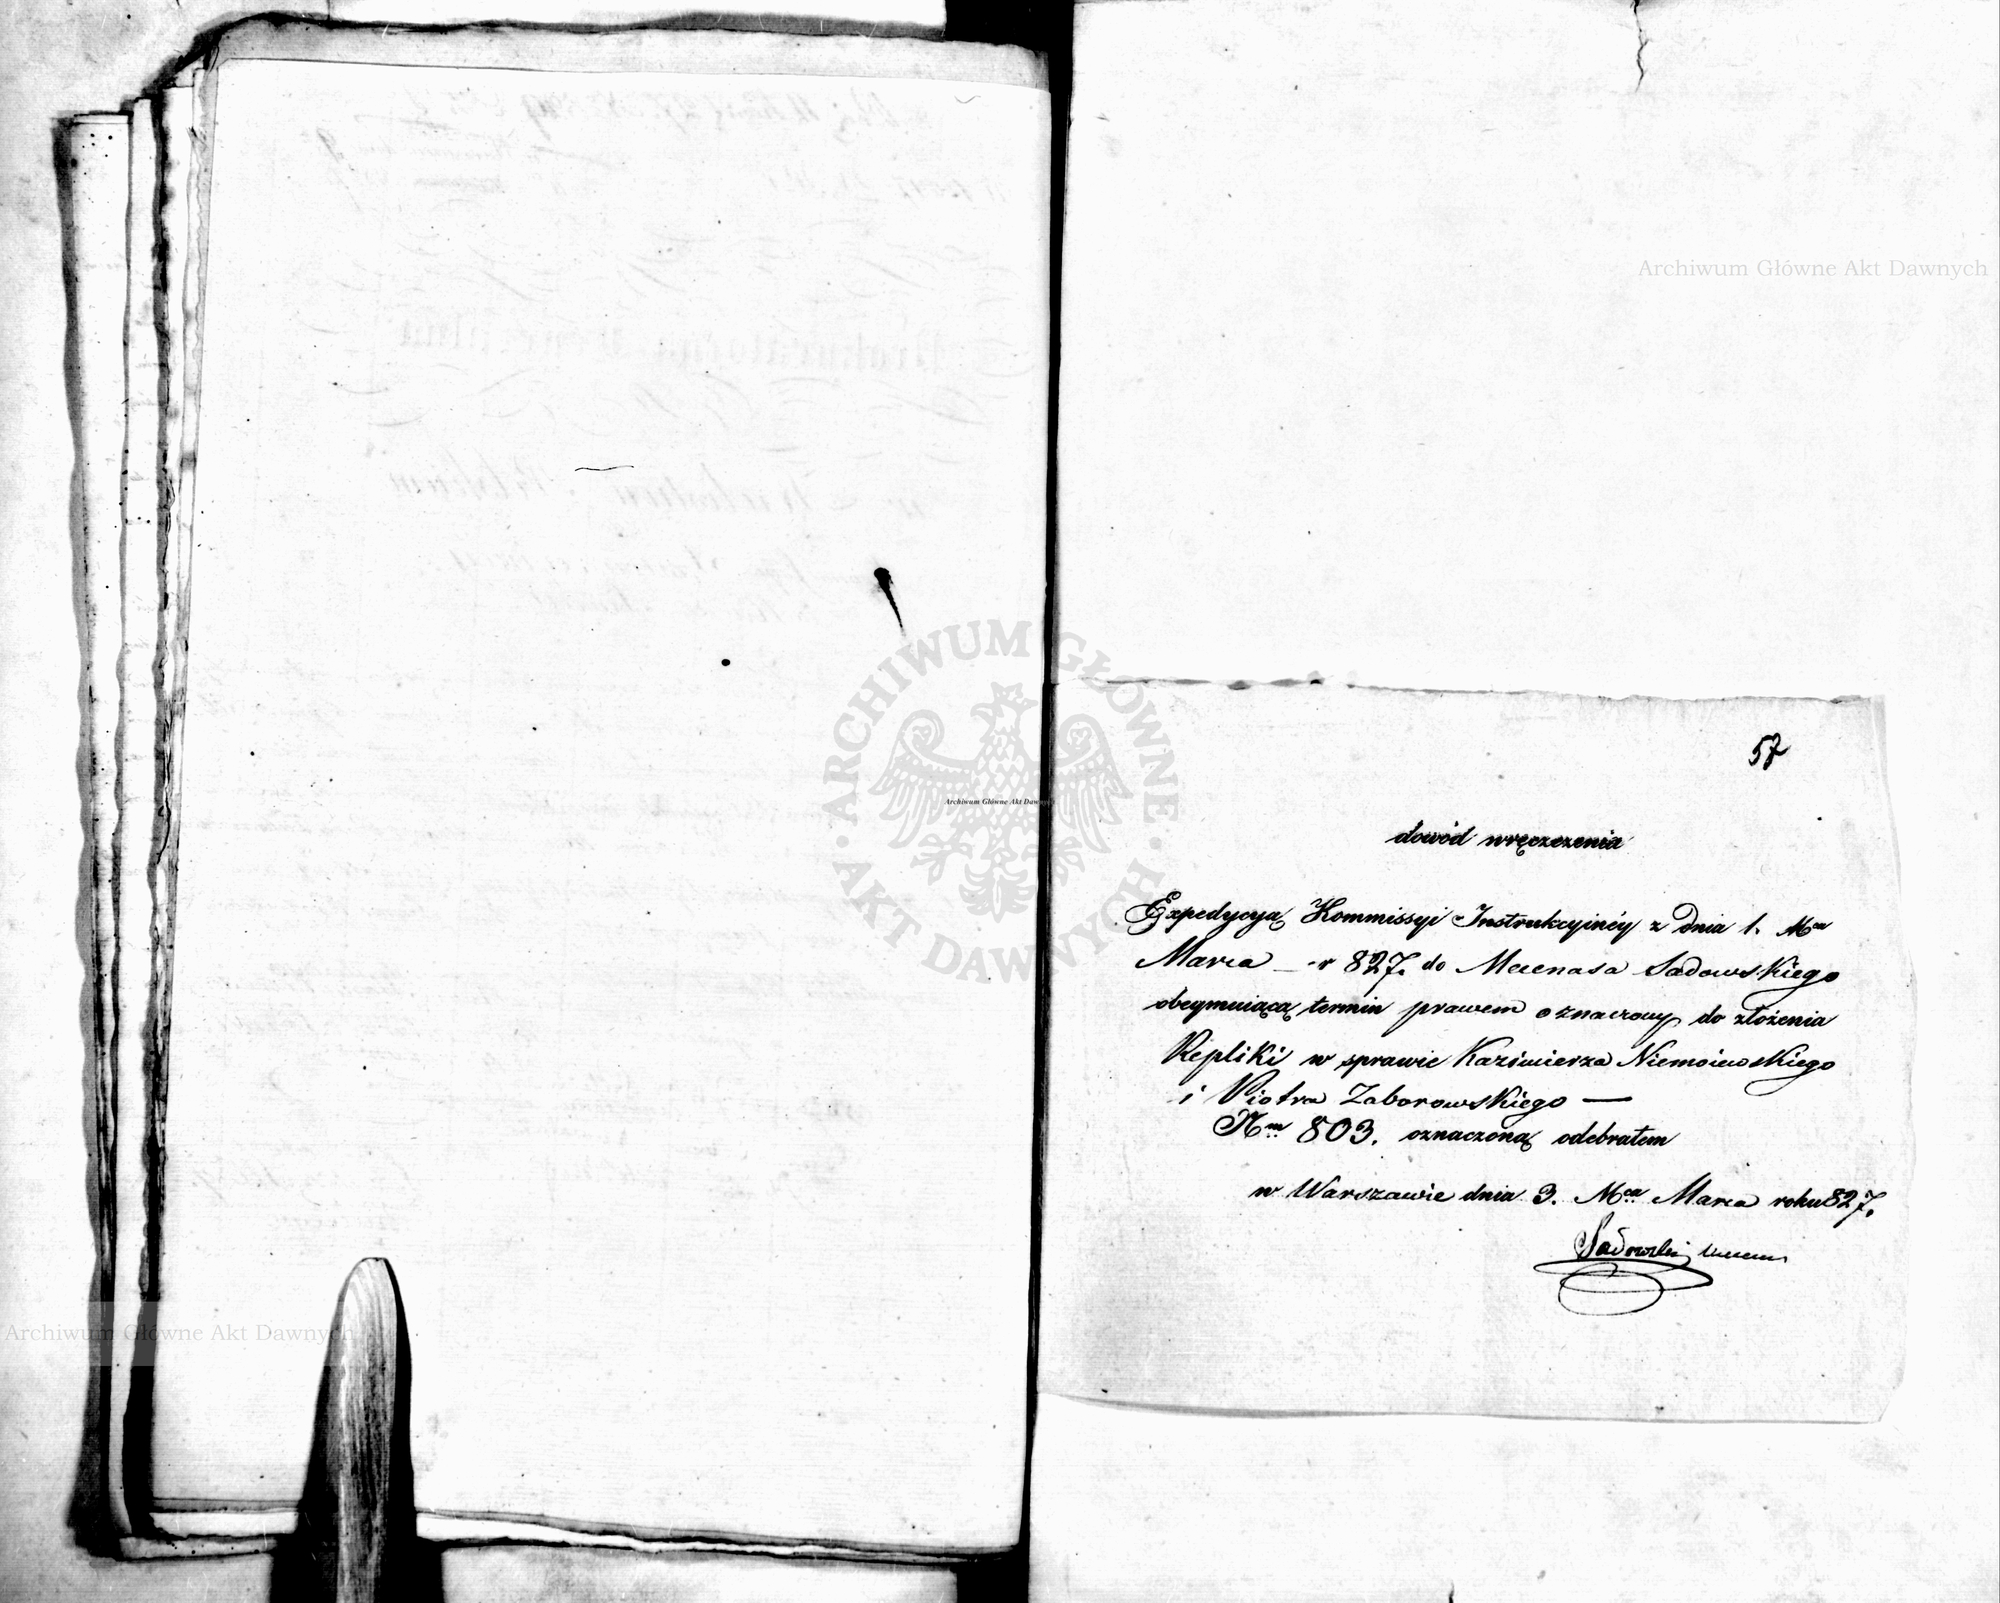 57
dowód wręczenia
Expedycyą Kommissyi Instrukcyinéy z dnia 1. Mca
Marca r 827. do Mecenasa Sadowskiego
obeymuiącą termin prawem oznaczony do złożenia
Repliki w sprawie Kazimierza Niemoiewskiego
i Piotra Zaborowskiego —
Nm 803. oznaczoną odebrałem
w Warszawie dnia 3. Mca Marca roku 827.
Sadowski
ARCHIWUM GŁÓWNE
AKT DAWNYCH
Archiwum Główne Akt Dawnych
Archiwum Główne Akt Dawnych
Archiwum Główne Akt Dawnych